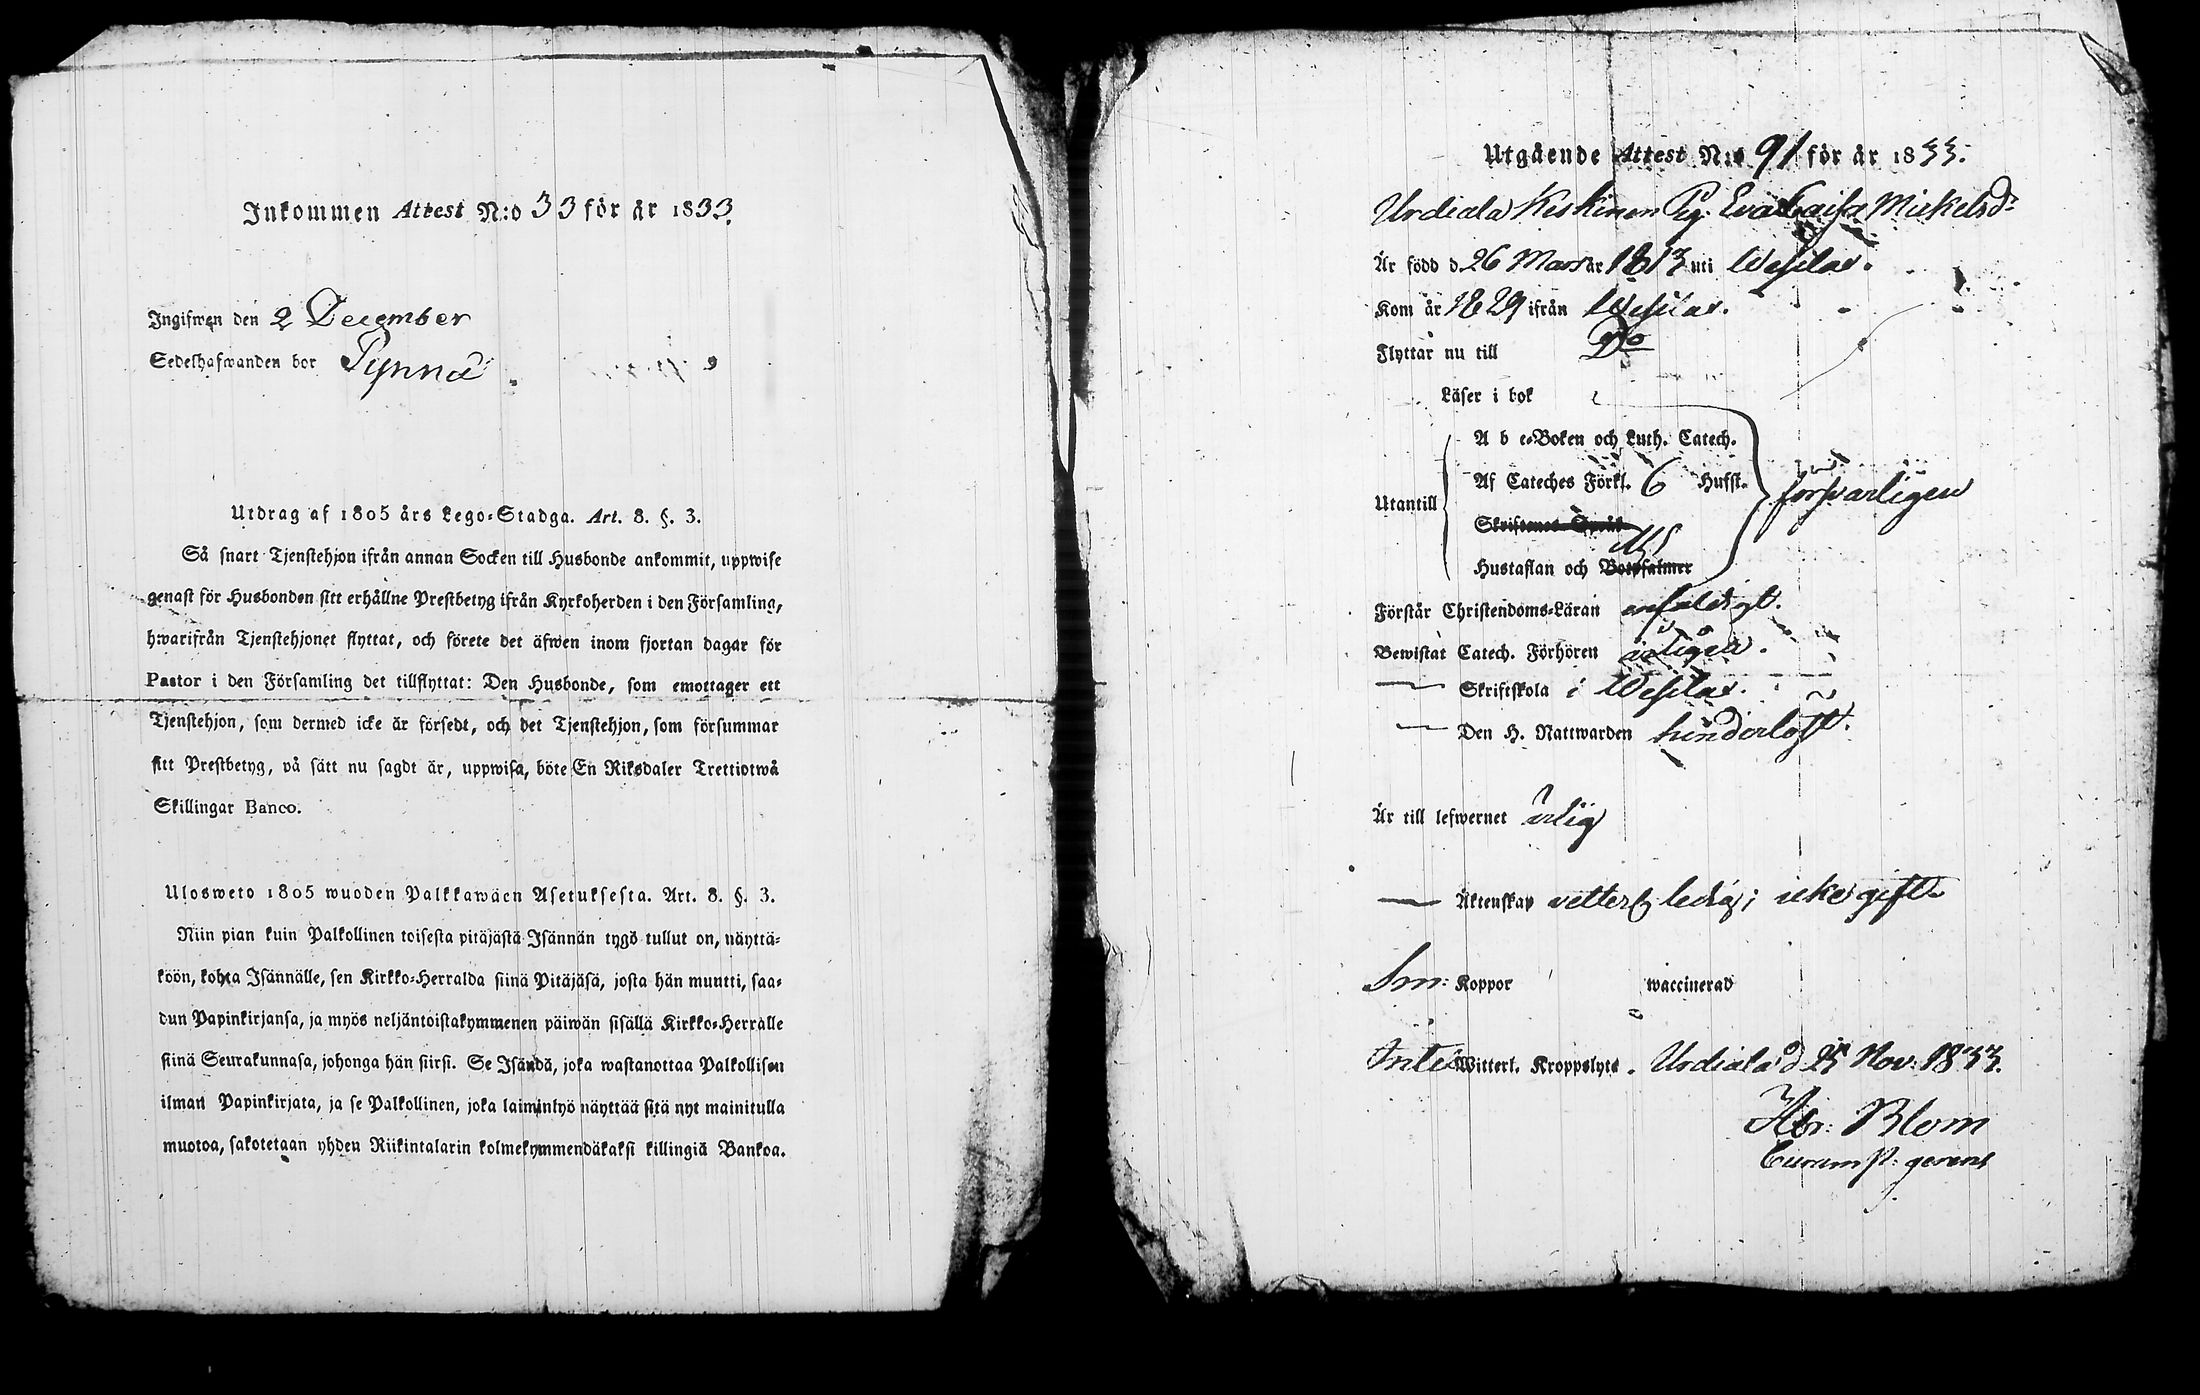 Inkommen Attest N:o 33 för år 1833.
Ingifwen den 2 December
Sedelhafwanden bor Pynnä
Utdrag af 1805 års Lego-Stadga. Art. 8. §. 3.
Så snart Tjenstehjon ifrån annan Socken till Husbonde ankommit, uppwise
genast för Husbonden sitt erhållne Prestbetyg ifrån Kyrkoherden i den Församling,
hwarifrån Tjenstehjonet flyttat, och förete det äfwen inom fjortan dagar för
Pastor i den Församling det tillflyttat: Den Husbonde, som emottager ett
Tjenstehjon, som dermed icke är försedt, och det Tjenstehjon, som försummar
sitt Prestbetyg, på sätt nu sagdt är, uppwisa, böte En Riksdaler Trettiotwå
Skillingar Banco.
Ulosweto 1805 wuoden Palkkawäen Asetuksesta. Art. 8. §. 3.
Niin pian kuin Palkollinen toisesta pitäjästä Isännän tygö tullut on, näyttä-
köön, kohta Isännälle, sen Kirkko-Herralda siinä Pitäjäsä, josta hän muntti, saa-
dun Papinkirjansa, ja myös neljäntoistakymmenen päiwän sisällä Kirkko-Herralle
siinä Seurakunnasa, johonga hän siirsi. Se Isändä, joka wastanottaa Palkollisen
ilman Papinkirjata, ja se Palkollinen, joka laiminlyö näyttää sitä nyt mainitulla
muotoa, sakotetaan yhden Riikintalarin kolmekymmendäkaksi killingiä Bankoa.
Utgående Attest N:o 91 för år 1833.
Urdiala Keskinen Pig. Eva Caisa Mickelsd:r
Är född d. 26 Mars år 1813 uti Wesilax.
Kom år 1829 ifrån Wesilax.
Flyttar nu till Do
Läser i bok
A b c-Boken och Luth. Catech.
Af Cateches Förkl. 6 Hufst.
Utantill försvarligen
Skriftenes Språk
Hustaflan och Botpsalmer
Förstår Christendoms-Läran enfaldigt.
Bewistat Catech. Förhören årligen.
— Skriftskola i Wesilax.
— Den H. Nattwarden hinderlöst.
Är till lefwernet ärlig
— Äktenskap ledig; icke gift.
Sm: Koppor waccinerad
Inte Witterl. Kroppslyte. Urdiala d. Nov. 1833.
Blom